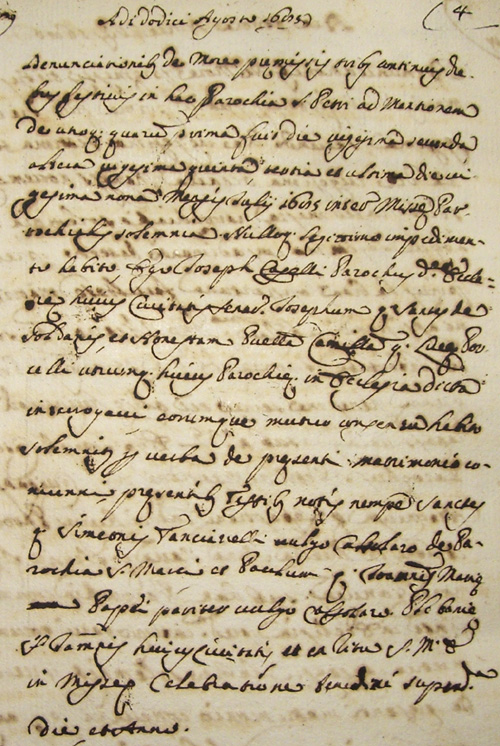 Adi dodici Agosto 1695
4
Denunciationib de More premissis trib continuis die-
bus festivis in hac Parochia S. Petri ad Mentionem
De unoq: quare prima fuit die vigesima secunda
alia vigesima quinta tertia et ultima die vi
gesima nona Mensis Julij 1695 inter Missę Par-
rochialis solemnia Nulloq. legitimo impedimen-
to habito, Ego Joseph Parochus d. Eccle-
sie huius Civitatis Josephum q. Santis de
Soldanis et Honestam Puellā Camillā q.
utrumq. huius Parochię. in Ecclesia dicta
interrogavi eorumque mutuo consensu habito
solemnit p verba de presenti matrimonio co-
niunxi presentib Testib notis nempe Sanctes
q Simeonis vulgo Calzolaro de Pa-
rochia S. Marci et Paulum q. Joannis
Baptē pariter vulgo Plebanie
S. huius civitatis et ex Ritu S. M. E
in Missę Celebratione benedixi supra.
Die et Anno.